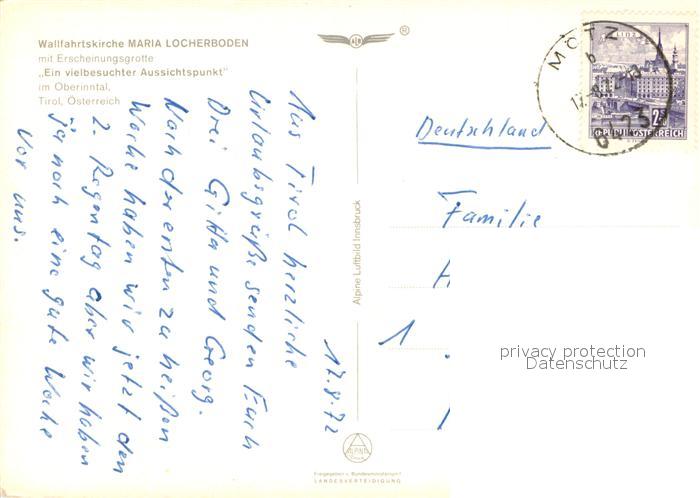 Wallfahrtskirche MARIA LOCHERBODEN
mit Erscheinungsgrotte
„Ein vielbesuchter Aussichtspunkt"
im Oberinntal,
Tirol, Österreich
®
MÖTZ
b
6423
LINZ
REPUBLIK ÖSTERREICH
Deutschland
Familie
17.8.72
Aus Tirol herzliche
Urlaubsgrüße senden Euch
Drei Gitta und Georg.
Nach der ersten zu heißen
Woche haben wir jetzt den
2. Regentag aber wir haben
ja noch eine gute Woche
vor uns.
Alpine Luftbild Innsbruck
ALPINE
Freigegeben v. Bundesministerium f.
LANDESVERTEIDIGUNG
privacy protection
Datenschutz